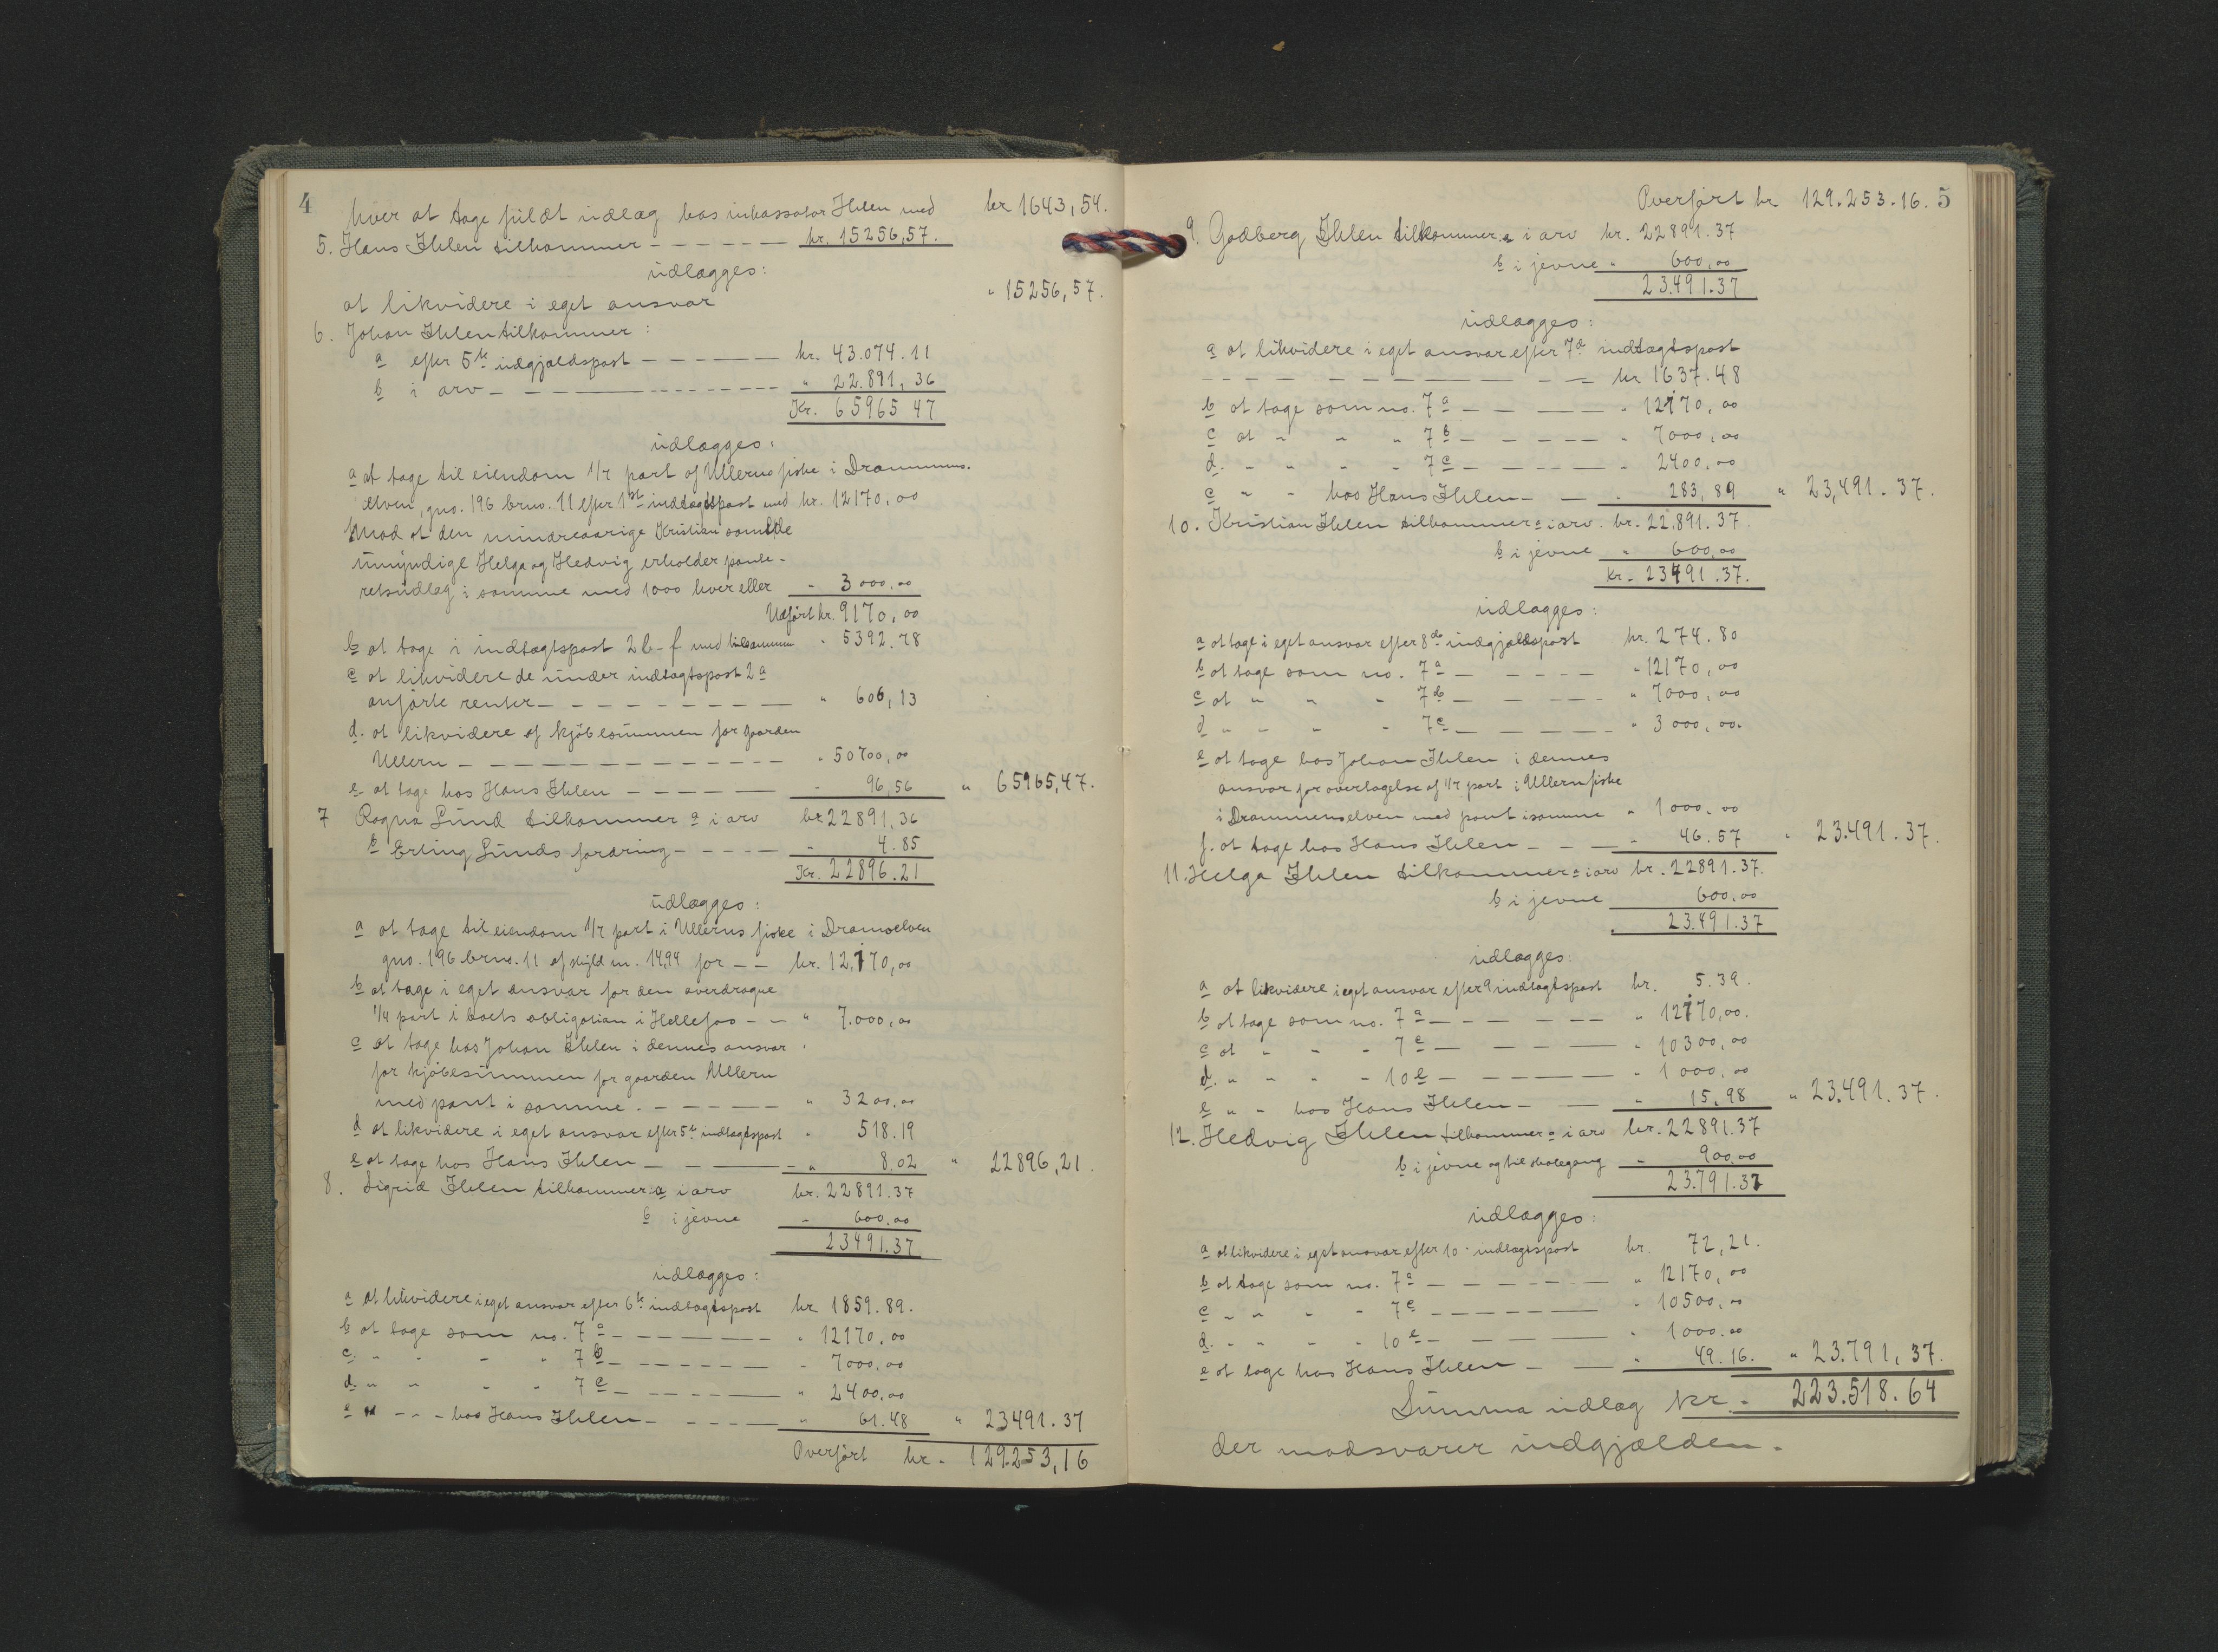 4
hver at tage fuldt udlæg hos inkassator Ihlen med kr 1643,54.
5. Hans Ihlen tilkommer - - - - - - kr. 15256,57.
udlægges:
at likvidere i eget ansvar " 15256,57.
6. Johan Ihlen tilkommer:
a efter 5te udgjældspost - - - - - kr. 43.074.11
b i arv - - - - - - - " 22.891,36
Kr. 65965 47
udlægges:
a at tage til eiendom 1/7 part af Ullerns fiske i Drammens-
elven, gno. 196 brno. 11 efter 1st indtægtspost med kr. 12170,00
Mod at den mindreaarige Kristian samt de
umyndige Helga og Hedvig erholder pante-
retsudlæg i samme med 1000 hver eller - 3000,00
Udført kr. 9170,00
b at tage i indtægtspost 2 b-f med tilsammen " 5392.78
c at likvidere de under indtægtspost 2a
anførte renter - - - - - - - - " 606,13
d. at likvidere af kjøbesummen for gaarden
Ullern - - - - - - - - - " 50700,00
e at tage hos Hans Ihlen - - - - - - 96,56 " 65965,47.
7 Ragna Lund tilkommer a i arv kr 22891,36
b Erling Lunds fordring - - - - - - 4.85
Kr. 22896.21
udlægges:
a at tage til eiendom 1/7 part i Ullerns fiske i Dramselven
gno. 196 brno. 11 af skyld m. 14,94 for - - kr. 12,170,00
b at tage i eget ansvar for den overdragne
1/4 part i boets obligation i Hellefos - - " 7.000,00
c at tage hos Johan Ihlen i dennes ansvar
for kjøbesummen for gaarden Ullern
med pant i samme - - - - - - " 3200,00
d at likvidere i eget ansvar efter 5te indtægtspost - 518.19
e at tage hos Hans Ihlen - - - - - " 8,02 " 22896,21.
8. Sigrid Ihlen tilkommer a i arv kr. 22891.37
b i jevne - 600,00
23491.37
udlægges:
a at likvidere i eget ansvar efter 6te indtægtspost kr 1859.89.
b at tage som no. 7a - - - - - - " 12170.00
c. - - - " 7b - - - - - - - 7000,00
d " " - - 7c - - - - - - " 2400,00
e " - - - hos Hans Ihlen - - - - - " 61.48 " 23491.37
Overført kr - 129.253,16
Overført kr 129.253.16. 5
9. Godberg Ihlen tilkommer a i arv kr. 22891.37
b i jevne " 600,00
23.491.37
udlægges:
a at likvidere i eget ansvar efter 7de indtægtspost
- - - - - - - - - kr 1637.48
b at tage som no. 7a - - - - - " 12170,00
c at " " " 7b - - - - - " 7000,00
d. - - - - 7c - - - - - - 2400,00
e " - hos Hans Ihlen - - - 283,89 " 23,491.37.
10. Kristian Ihlen tilkommer a i arv. kr. 22,891.37.
b i jevne " 600,00
kr - 23491.37.
udlægges:
a at tage i eget ansvar efter 8de indgjældspost kr. 274.80
b at tage som no. 7a - - - - - - 12170,00
c at " " " 7b - - - - - " 7000,00
d " " " - 7c - - - - - " 3000,00.
e at tage hos Johan Ihlen i dennes
ansvar for overtagelse af 1/7 part i Ullernfiske
i Drammenselven med pant i samme " 1000,00
f. at tage hos Hans Ihlen - - - - 46.57 " 23.491.37.
11. Helga Ihlen tilkommer a i arv kr. 22891.37.
b i jevne 600,00
23.491.37
udlægges:
a at likvidere i eget ansvar efter 9 indtægtspost kr. 5.39.
b at tage som no. 7a - - - - - - " 12170,00.
c at - - - 7c - - - - - - 10300,00
d. " " - - 10e - - - - - " 1000,00
e " - hos Hans Ihlen - - " 15,98 " 23.491.37.
12. Hedvig Ihlen tilkommer a i arv kr. 22891.37
b i jevne og til skolegang - 900,00
23.791.37
udlægges:
a at likvidere i eget ansvar efter 10. indtægtspost kr. 72,21.
b at tage som no. 7a - - - - - - " 12170,00
c - " - - 7c - - - - - - - 10500,00
d. - - - - 10e - - - - - - 1000.00
e at tage hos Hans Ihlen - - " 49.16. " 23.791,37.
Summa udlæg kr. - 223.518.64
der modsvarer indgjælden.